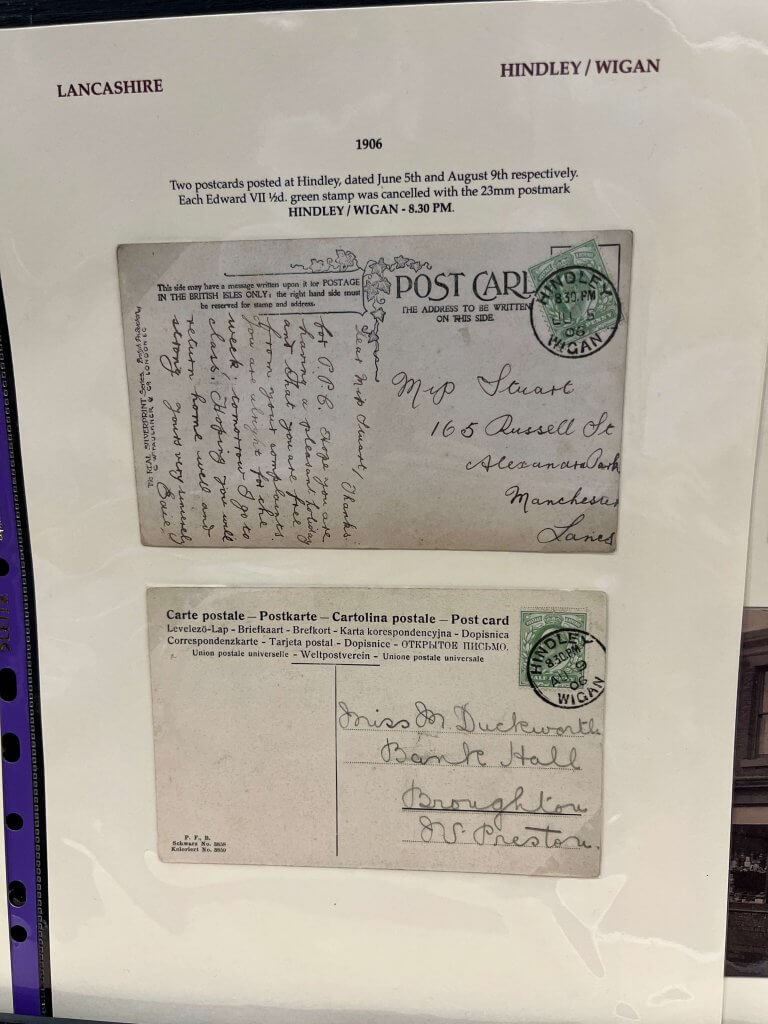 LANCASHIRE
HINDLEY / WIGAN
1906
Two postcards posted at Hindley, dated June 5th and August 9th respectively.
Each Edward VII ½d. green stamp was cancelled with the 23mm postmark
HINDLEY / WIGAN - 8.30 PM.
This side may have a message written upon it for POSTAGE
IN THE BRITISH ISLES ONLY: the right hand side must
be reserved for stamp and address.
POST CARD
THE ADDRESS TO BE WRITTEN
ON THIS SIDE.
HINDLEY
8.30 PM
JU 5
06
WIGAN
Dear Miss Stuart, Thanks
for P.P.C. Hope you are
having a pleasant holiday
and that you are free
from your complaints
You are alright for the
week; tomorrow I go to
class. Hoping you will
return home well and
strong yours very sincerely
Miss Stuart
165 Russell St
Alexandra Park
Manchester
Lancs
Carte postale – Postkarte – Cartolina postale – Post card
Levelező-Lap - Briefkaart - Brefkort - Karta korespondencyjna - Dopisnica
Correspondenzkarte - Tarjeta postal - Dopisnice - ОТКРЫТОЕ ПИСЬМО.
Union postale universelle - Weltpostverein - Unione postale universale
HINDLEY
8.30 PM
AU 9
06
WIGAN
Miss M. Duckworth
Bank Hall
Broughton
Nr Preston.
P. F. B.
Schwarz No. 3858
Koloriert No. 3859